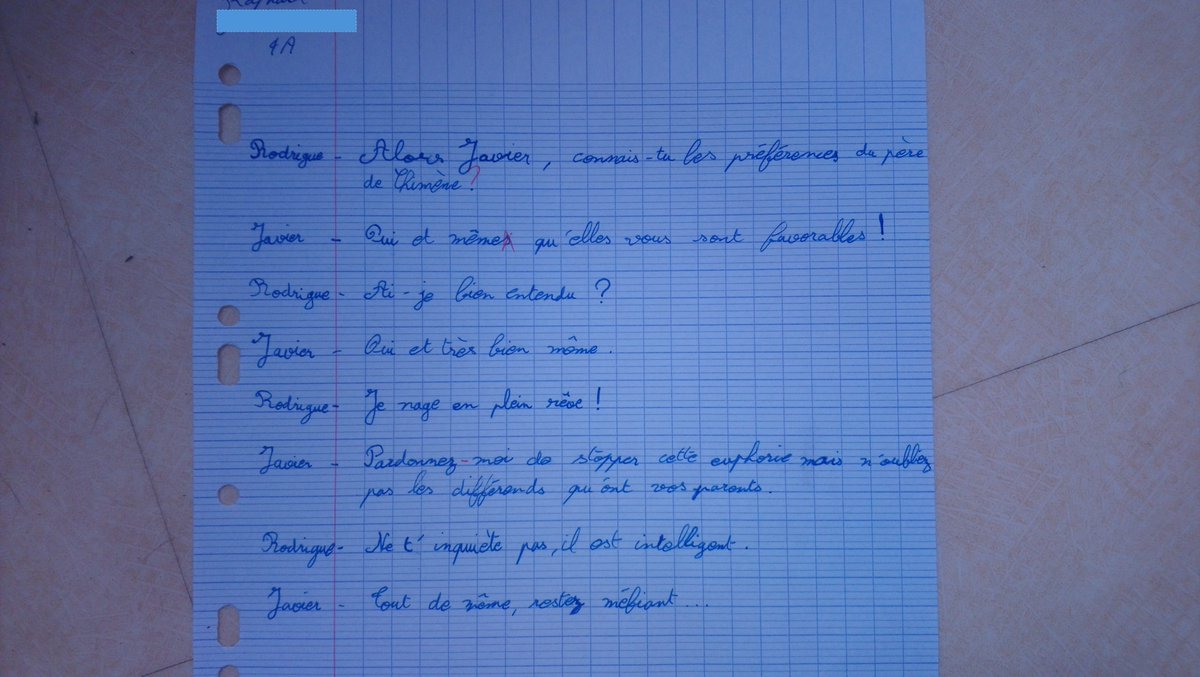 4A
Rodrigue - Alors Javier, connais-tu les préférences du père
de Chimène ?
Javier - Oui et mêmes qu'elles vous sont favorables !
Rodrigue - Ai-je bien entendu ?
Javier - Oui et très bien même.
Rodrigue - Je nage en plein rêve !
Javier - Pardonnez-moi de stopper cette euphorie mais n'oubliez
pas les différends qu'ont vos parents.
Rodrigue - Ne t'inquiète pas, il est intelligent.
Javier - Tout de même, restez méfiant...